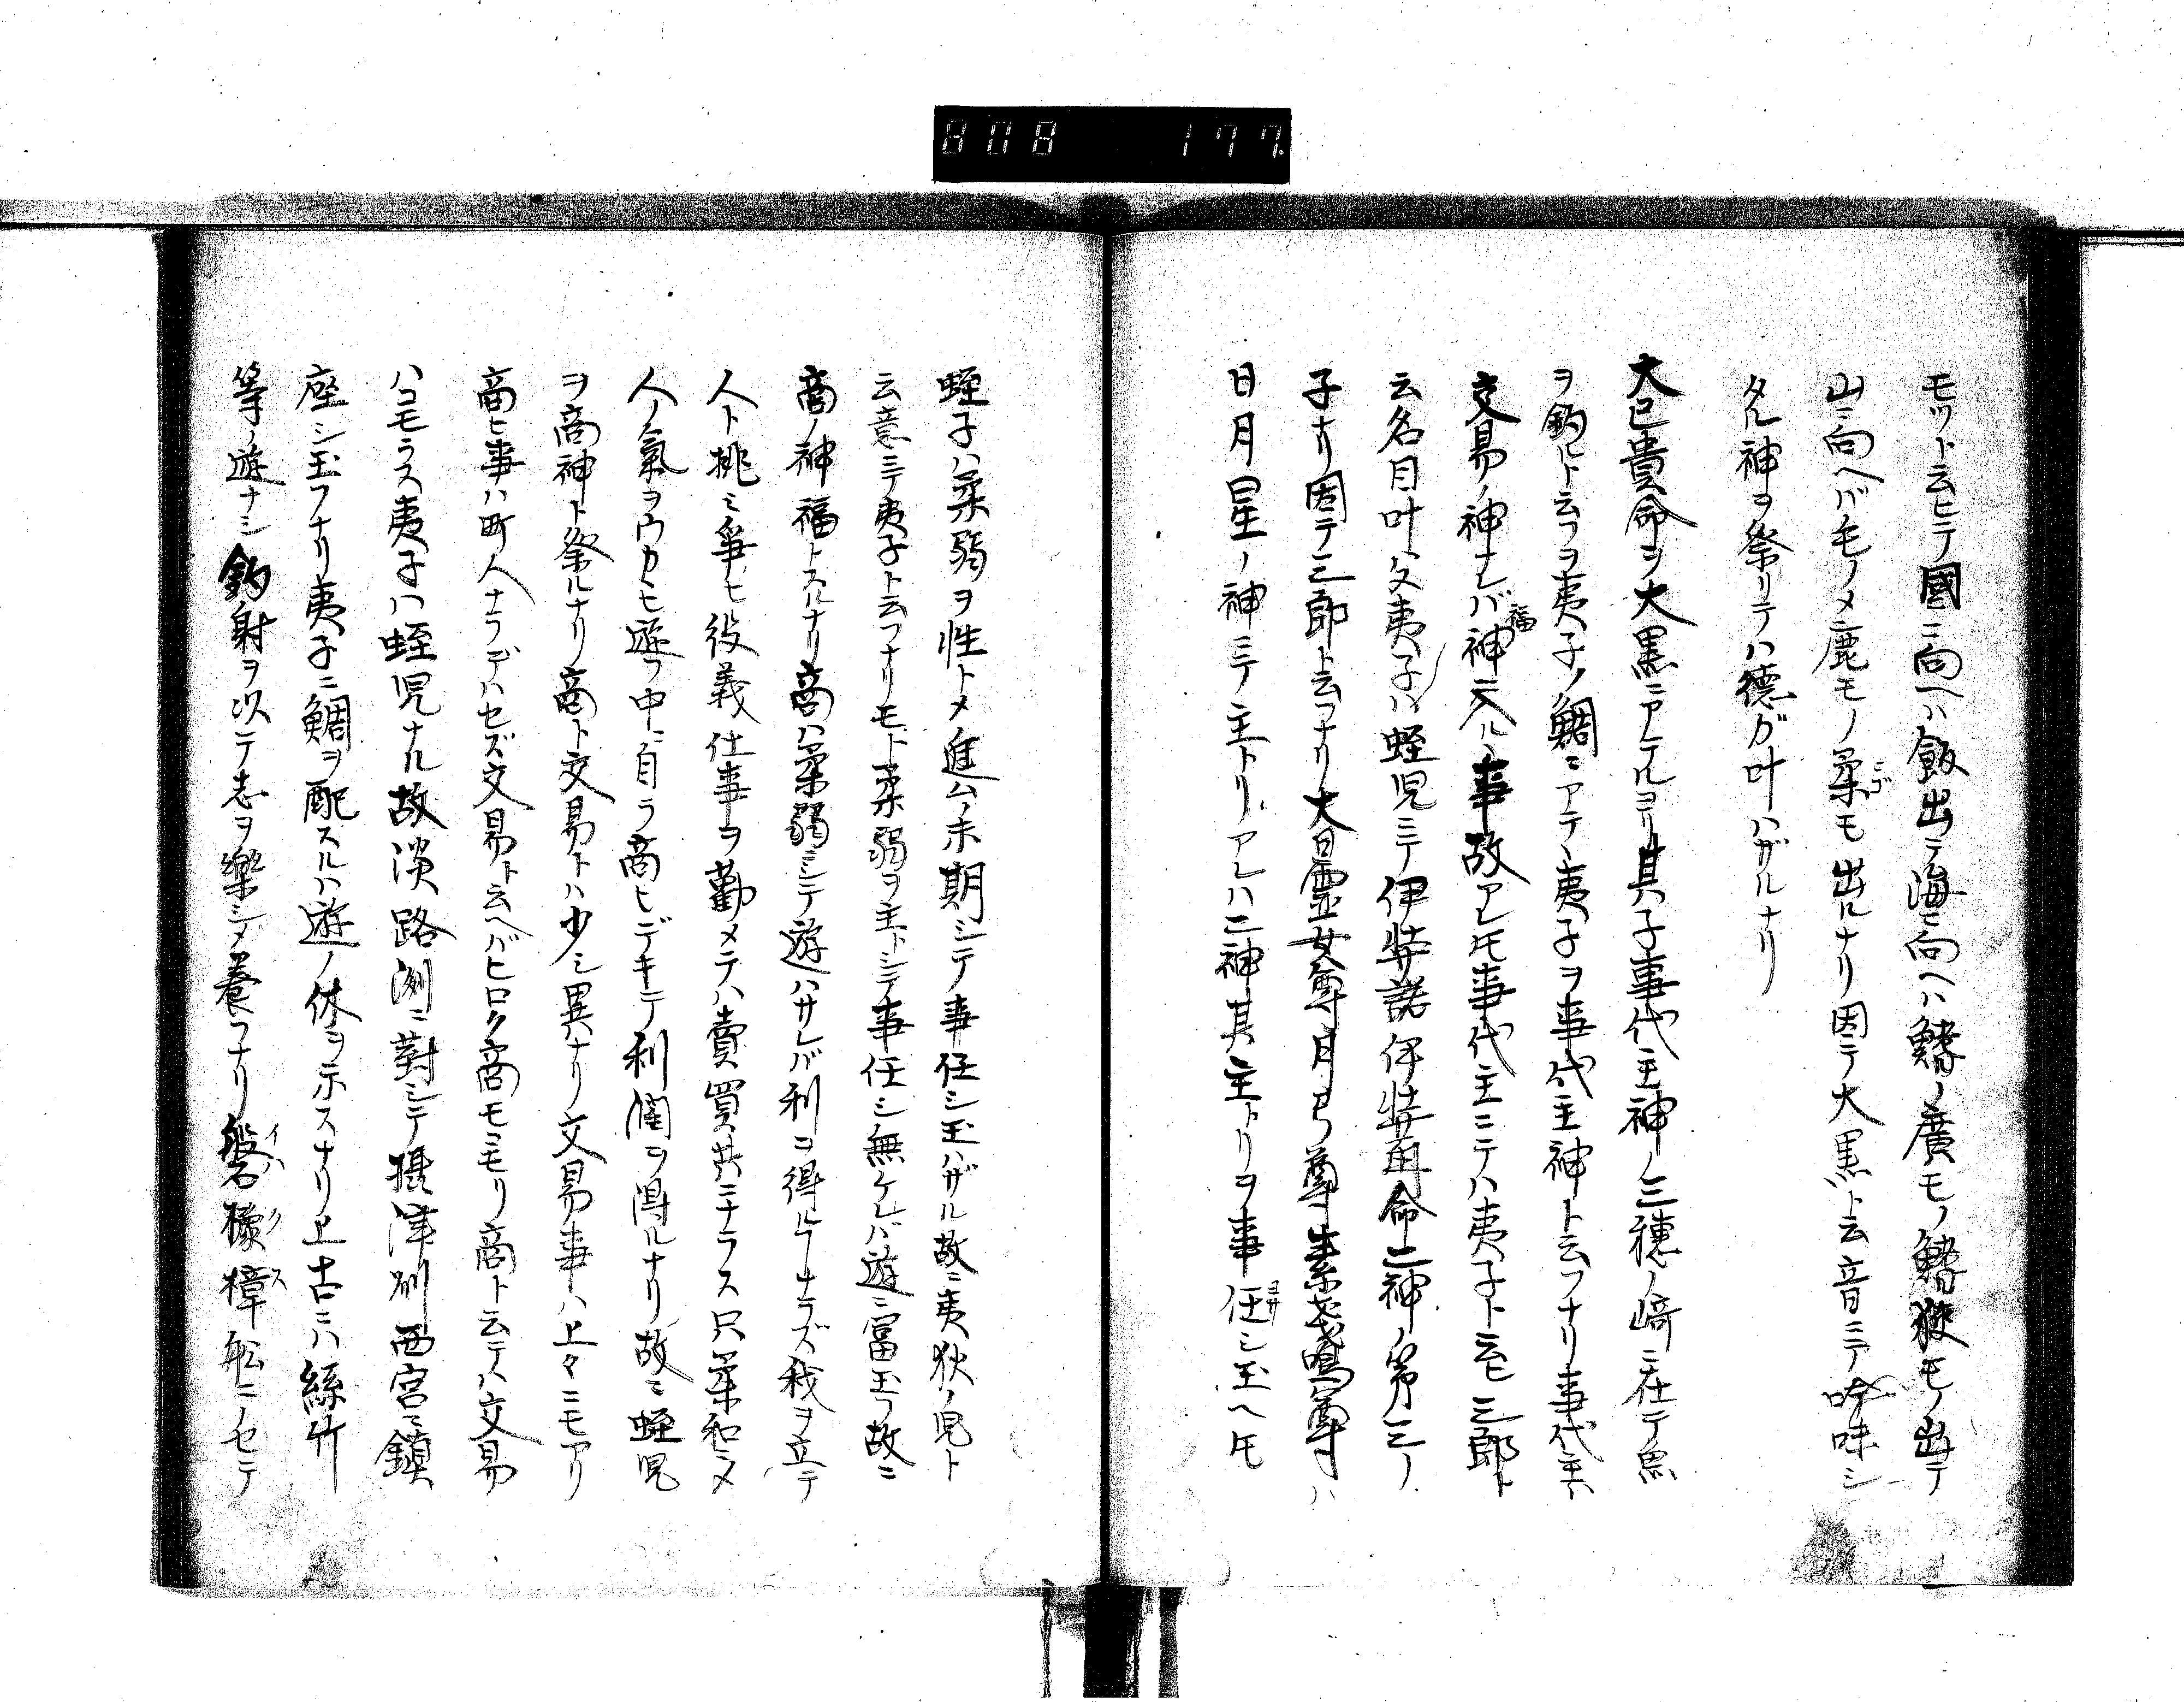 808 177
モツト云ヒテ國ニ向ヘハ飯出テ海ニ向ヘハ鰭ノ廣モノ鰭狹モノ出テ
山ニ向ヘバ毛ノメ鹿モノ柔モ出ルナリ因テ大黒ト云音ニテ吟味シ
タル神ヲ祭リテハ德ガ叶ハザルナリ
大已貴命ヲ大黒ニアテルヨリ其子事代主神ノ三穗ノ﨑ニ在テ魚
ヲ釣ルト云フヲ夷子ノ鯛ニアテ夷子ヲ事代主神ト云フナリ事代主ト
交易ノ神ナレバ福神ニ入ル事故アレ𪜈事代主ニテハ夷子ト云ヒ三郎ト
云名目叶ハヌ夷子ハ蛭児ニテ伊弉諾伊弉冊命二神ノ第三ノ
子ナリ因テ三郎ト云フナリ大日霊女尊月弓尊素戔嗚尊ハ
日月星ノ神ニテ主トリアレハ二神其主トリヲ事任シ玉ヘ𪜈
蛭子ハ柔弱ヲ性トメ進ム未期シテ事任シ玉ハザル故ニ夷狄ノ児ト
云意ニテ夷子ト云フナリモト柔弱ヲ主トシテ事任シ無ケレバ遊ニ富玉フ故ニ
商ノ神福トスルナリ商ハ柔弱ニシテ遊ハサレバ利ヲ得ルヿナラズ我ヲ立テ
人ト挑ミ爭ヒ役義仕事ヲ勤メテハ賣買共ニナラス只柔和ニメ
人ノ氣ヲウカヒ遊フ中ニ自ラ商ヒデキテ利潤ヲ得ルナリ故ニ蛭児
ヲ商神ト祭ルナリ商ト交易トハ少シ異ナリ交易事ハ上々ニモアリ
商ヒ事ハ町人ナラデハセズ交易ト云ヘバヒロク商モコモリ商ト云テハ交易
ハコモラス夷子ハ蛭児ナル故淡路洲ニ對シテ攝津州西宮ニ鎮
座シ玉フナリ夷子ニ鯛ヲ配スルハ遊ノ休ヲ示スナリ上古ニハ絲竹
等ノ遊ナシ釣射ヲ以テ志ヲ樂シメ養フナリ磐櫲樟船ニノセテ